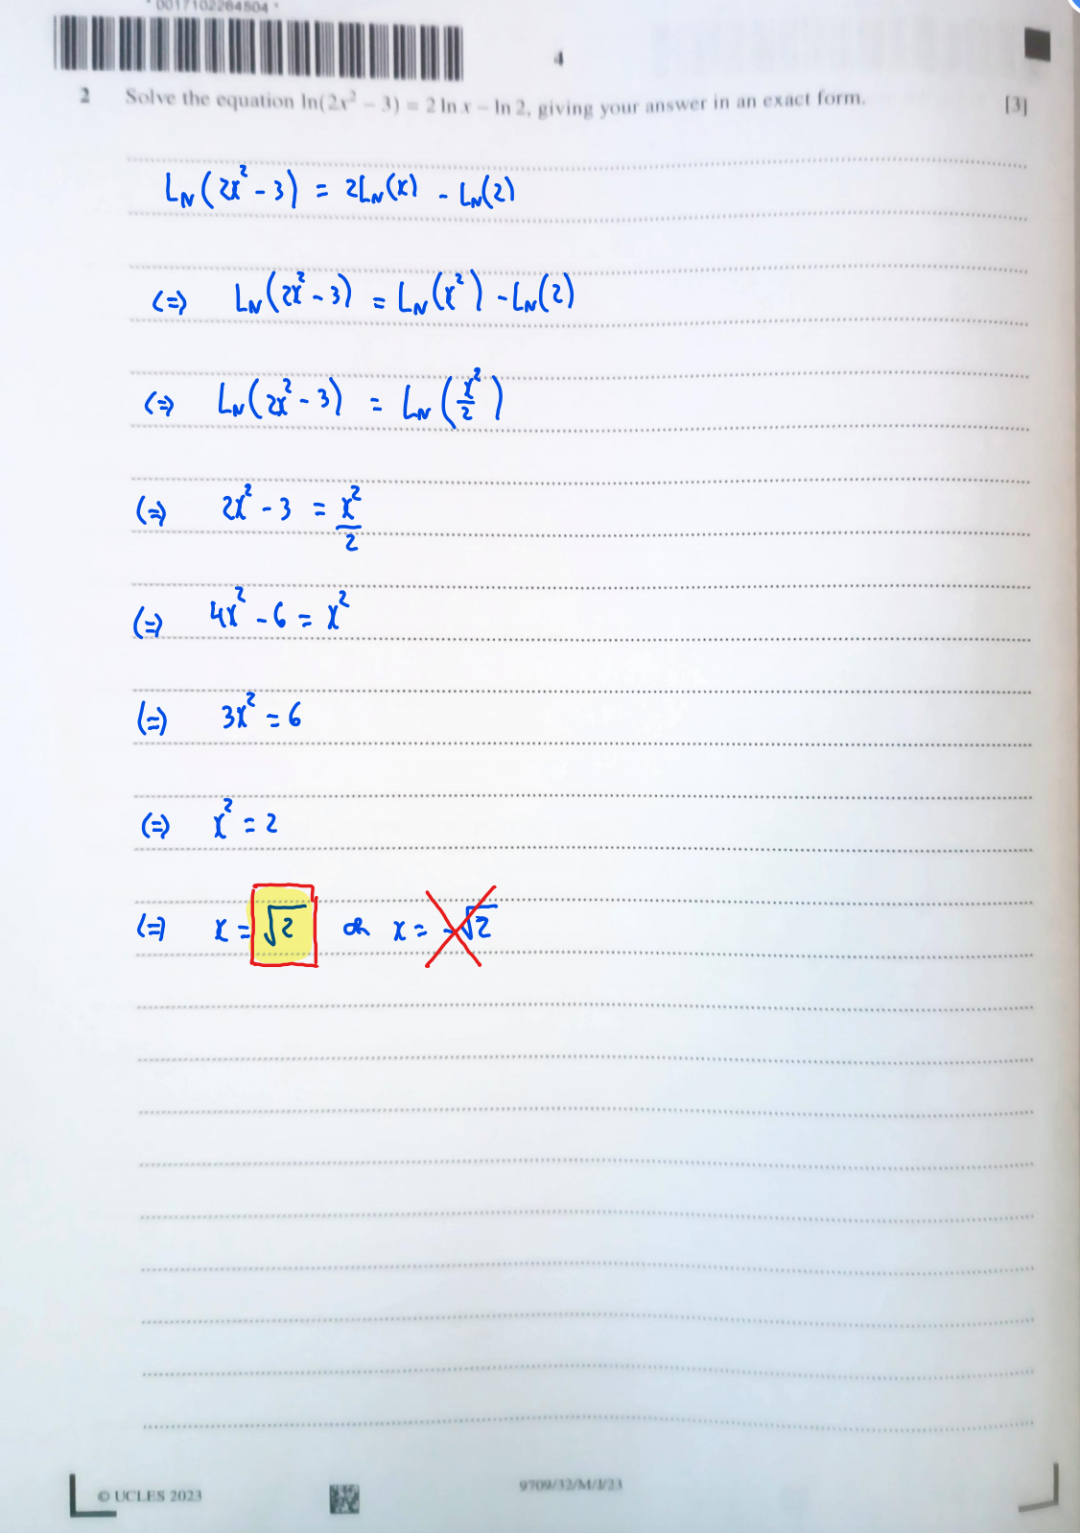 * 0017102264504 *
4
2 Solve the equation ln(2x² − 3) = 2 ln x − ln 2, giving your answer in an exact form. [3]
LN(2x² - 3) = 2LN(x) - LN(2)
(=) LN(2x² - 3) = LN(x²) - LN(2)
(=) LN(2x² - 3) = LN(x²/2)
(=) 2x² - 3 = x²/2
(=) 4x² - 6 = x²
(=) 3x² = 6
(=) x² = 2
(=) x = √2 or x = -√2
© UCLES 2023
9709/32/M/J/23